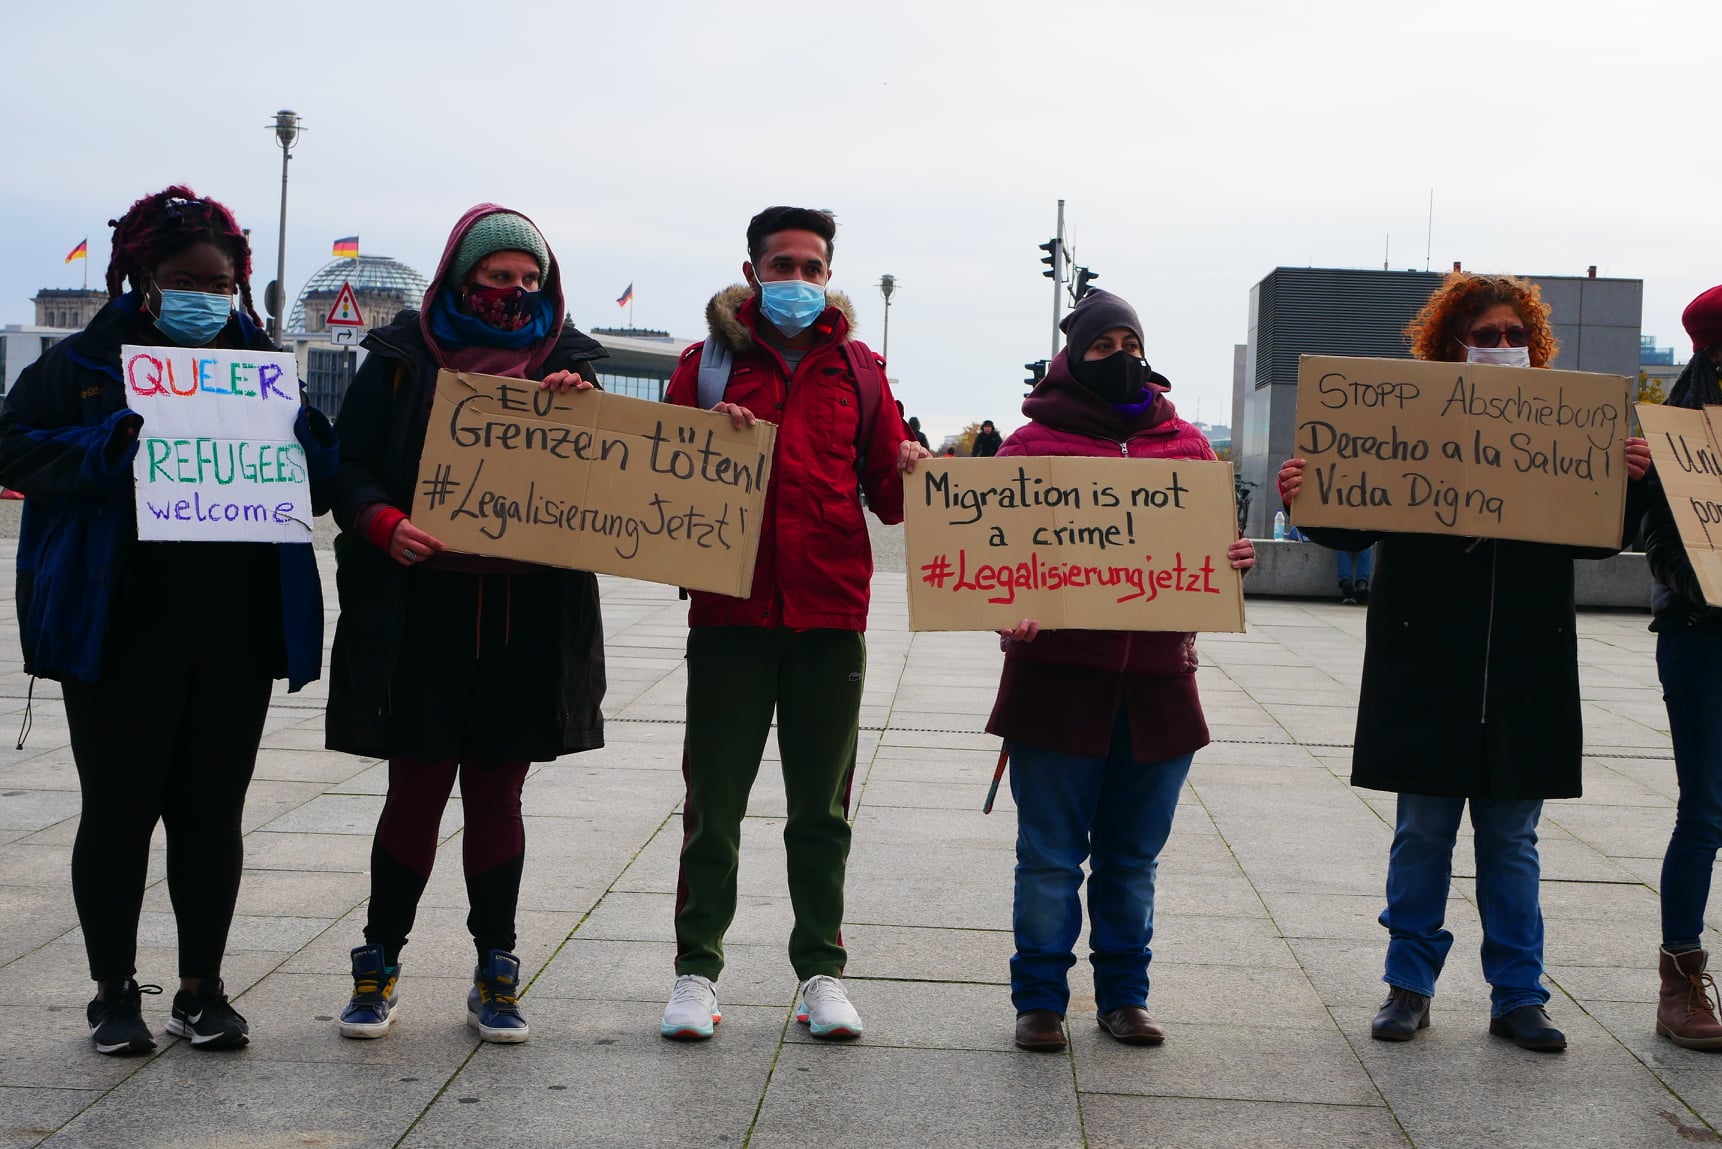 QUEER
REFUGEES
welcome
EU-
Grenzen töten!
#Legalisierung Jetzt!
Migration is not
a crime!
#Legalisierungjetzt
STOPP Abschiebung!
Derecho a la Salud!
Vida Digna